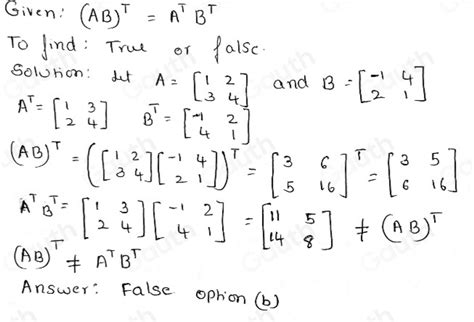 Given: (AB)ᵀ = Aᵀ Bᵀ
To find: True or false.
Solution: let A = [1 2; 3 4] and B = [-1 4; 2 1]
Aᵀ = [1 3; 2 4] Bᵀ = [-1 2; 4 1]
(AB)ᵀ = ([1 2; 3 4] [-1 4; 2 1])ᵀ = [3 6; 5 16]ᵀ = [3 5; 6 16]
Aᵀ Bᵀ = [1 3; 2 4] [-1 2; 4 1] = [11 5; 14 8] ≠ (AB)ᵀ
(AB)ᵀ ≠ Aᵀ Bᵀ
Answer: False option (b)